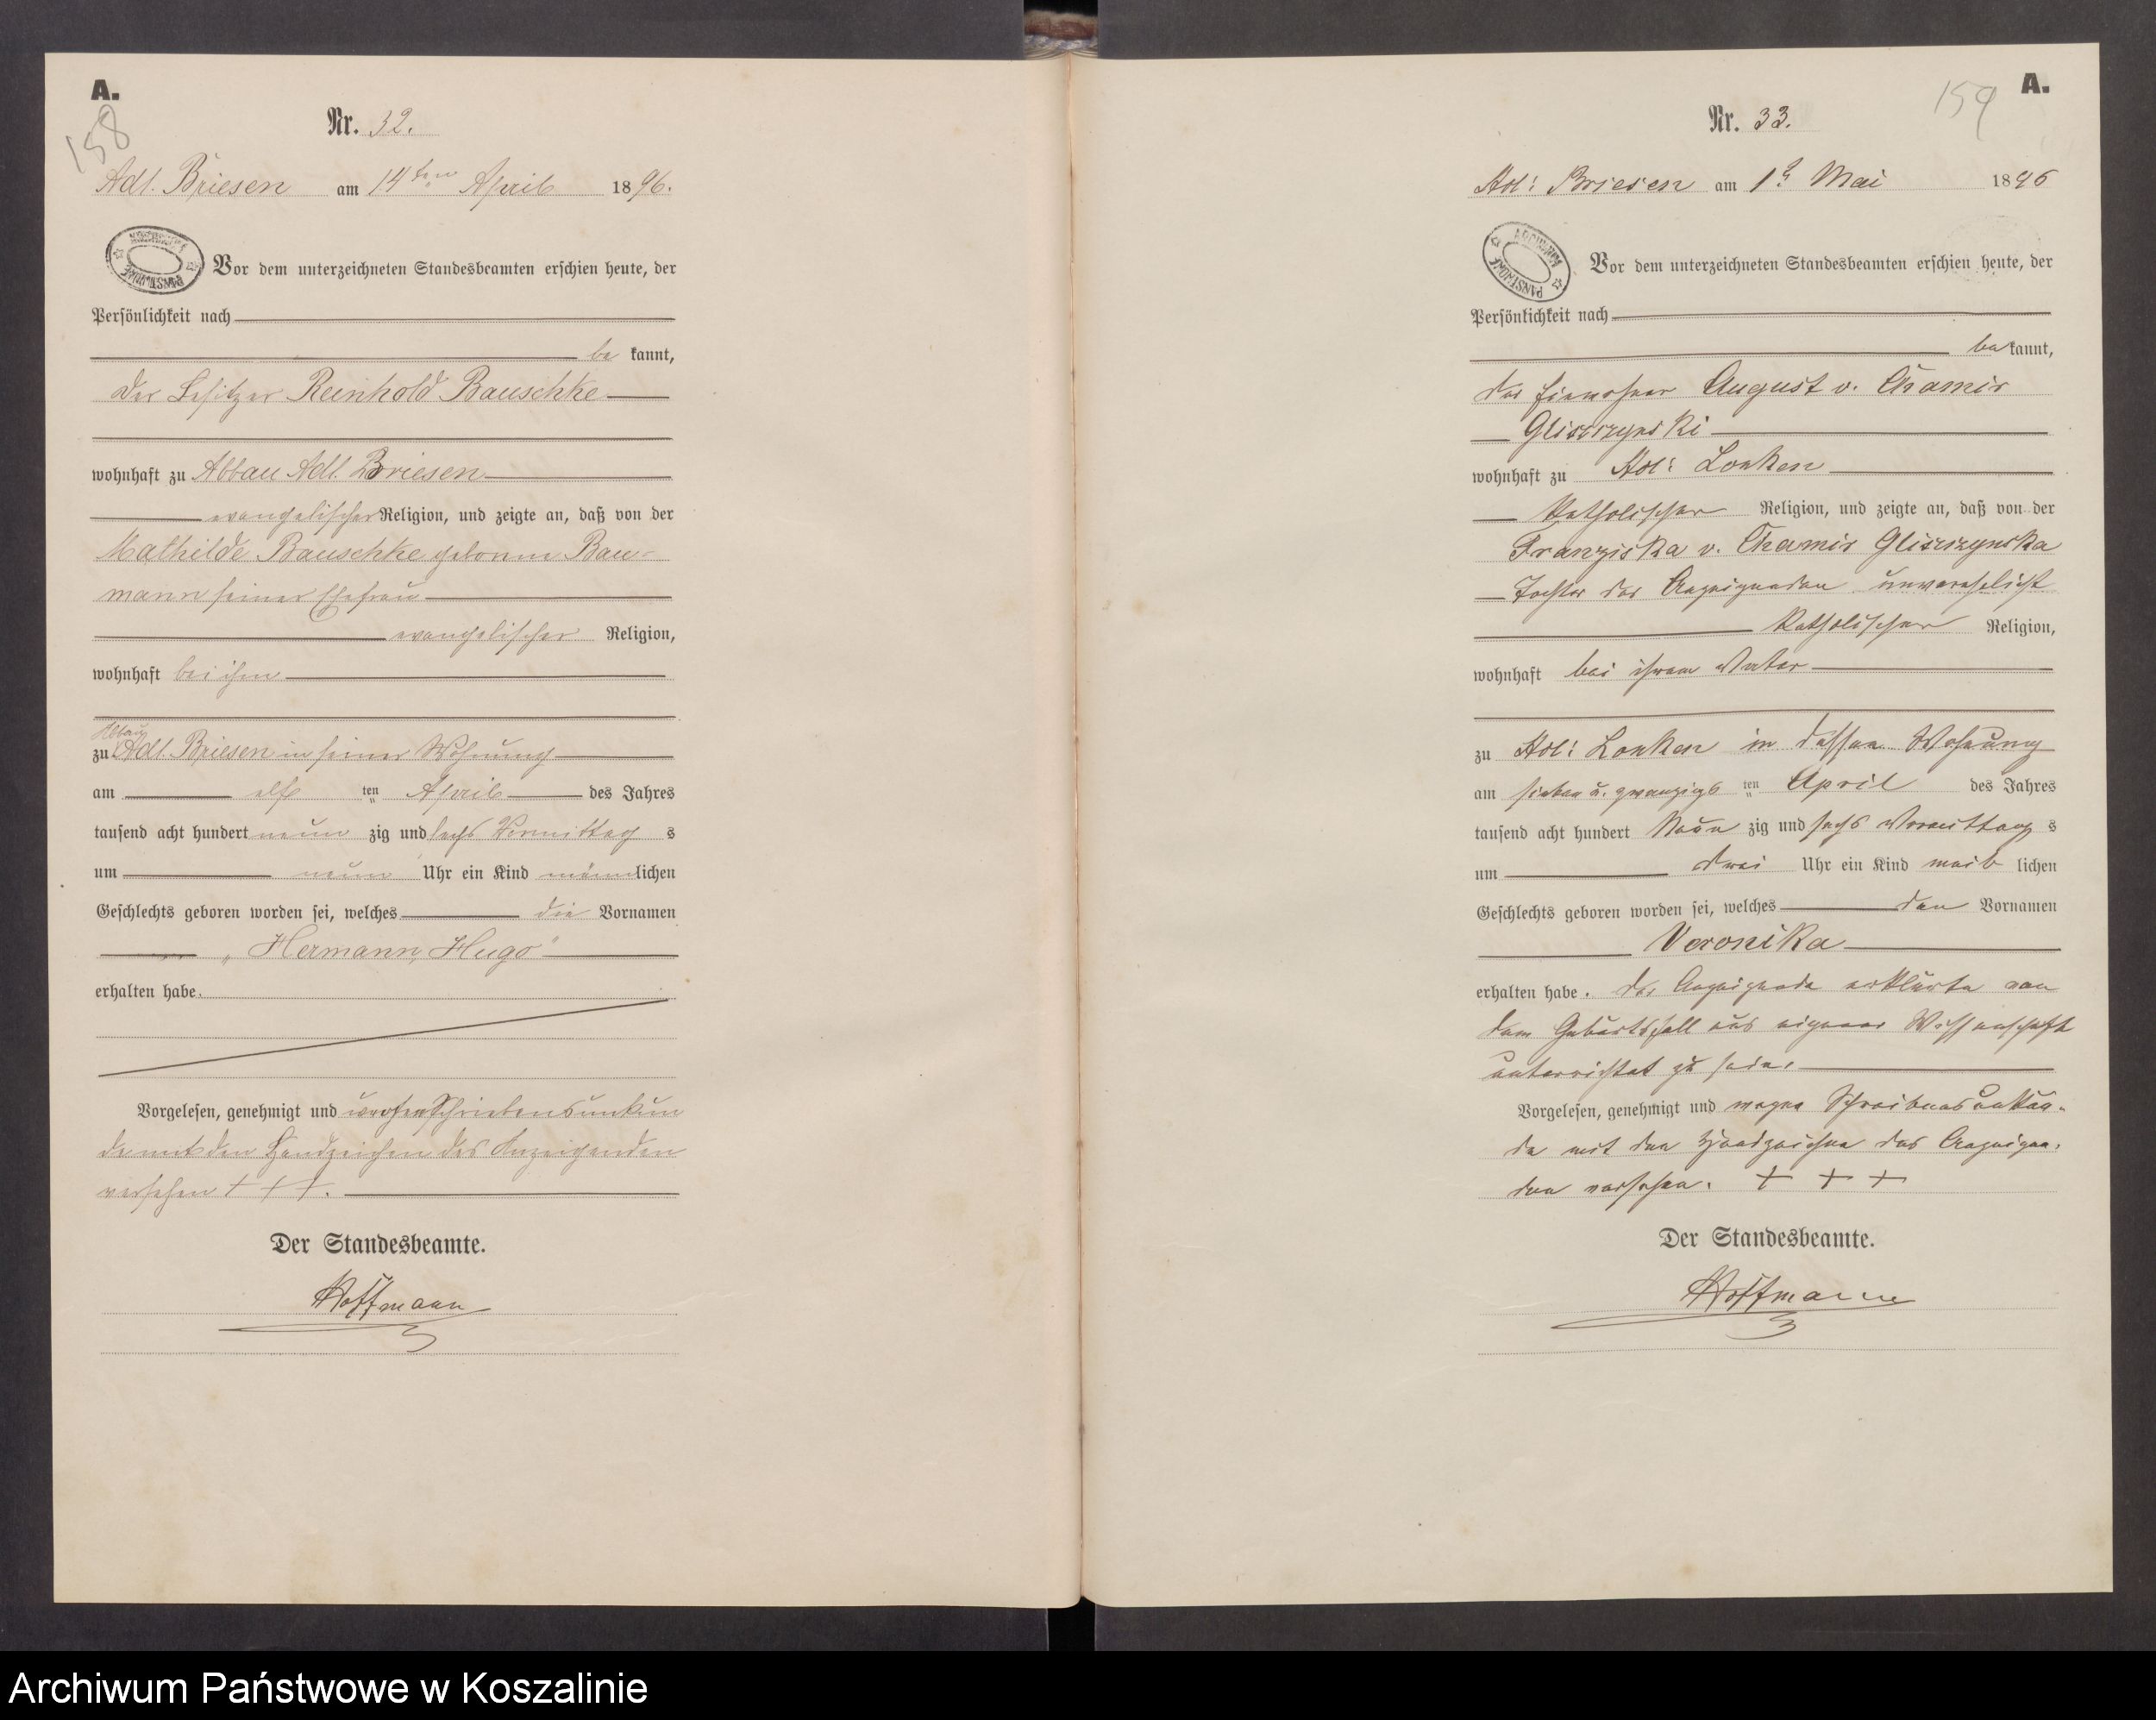 A.
158
Nr. 32.
Adl. Briesen am 14ten April 1896.
Vor dem unterzeichneten Standesbeamten erschien heute, der
Persönlichkeit nach
be kannt,
der Besitzer Reinhold Bauschke
wohnhaft zu Abbau Adl. Briesen
evangelischer Religion, und zeigte an, daß von der
Mathilde Bauschke geborene Bau-
mann seiner Ehefrau
evangelischer Religion,
wohnhaft bei ihm
Abbau
zu Adl. Briesen in seiner Wohnung
am elf ten April des Jahres
tausend acht hundert neun zig und sechs Vormittag s
um neun Uhr ein Kind männlichen
Geschlechts geboren worden sei, welches die Vornamen
„Hermann, Hugo“
erhalten habe.
Vorgelesen, genehmigt und wegen Schreibensunkun
de mit den Handzeichen des Anzeigenden
versehen + + +.
Der Standesbeamte.
Hoffmann
A.
159
Nr. 33.
Adl: Briesen am 1t Mai 1896
Vor dem unterzeichneten Standesbeamten erschien heute, der
Persönlichkeit nach
be kannt,
der Einwohner August v. Chamir
Gliszczynski
wohnhaft zu Adl: Lonken
katholischer Religion, und zeigte an, daß von der
Franziska v. Chamir Gliszczynska
Tochter des Anzeigenden unverehelicht
katholischer Religion,
wohnhaft bei ihrem Vater
zu Adl: Lonken in dessen Wohnung
am sieben u. zwanzigs ten April des Jahres
tausend acht hundert Neun zig und sechs Vormittag s
um drei Uhr ein Kind weib lichen
Geschlechts geboren worden sei, welches den Vornamen
Veronika
erhalten habe. Der Anzeigende erklärte von
dem Geburtsfall aus eigener Wissenschaft
unterrichtet zu sein.
Vorgelesen, genehmigt und wegen Schreibensunkun-
de mit den Handzeichen des Anzeigen-
den versehen. + + +
Der Standesbeamte.
Hoffmann
Archiwum Państwowe w Koszalinie